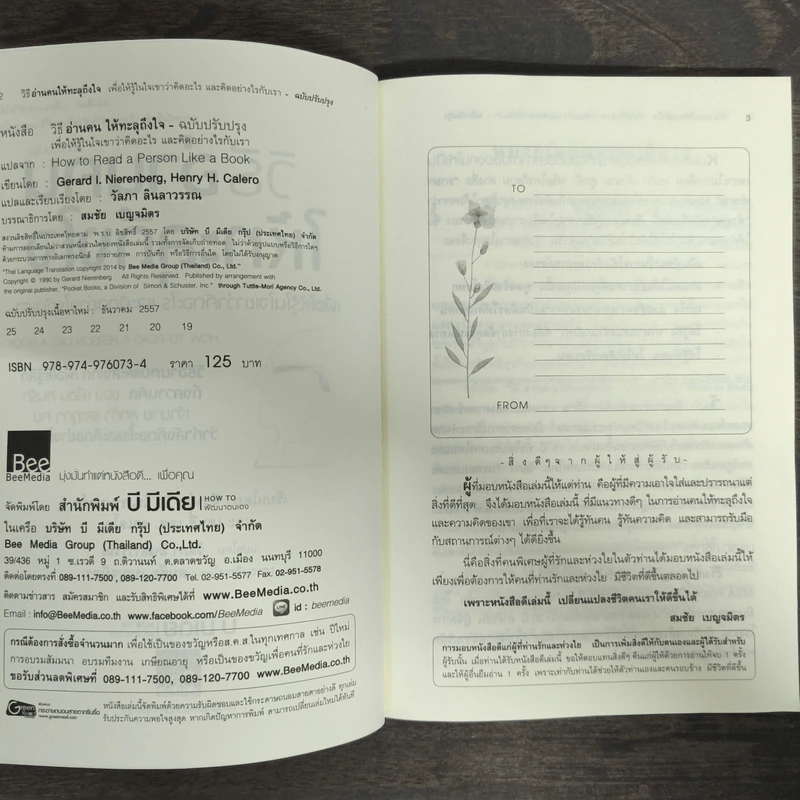 2 วิธีอ่านคนให้ทะลุถึงใจ เพื่อให้รู้ในใจเขาว่าคิดอะไร และคิดอย่างไรกับเรา - ฉบับปรับปรุง
หนังสือ วิธีอ่านคน ให้ทะลุถึงใจ - ฉบับปรับปรุง
เพื่อให้รู้ในใจเขาว่าคิดอะไร และคิดอย่างไรกับเรา
แปลจาก : How to Read a Person Like a Book
เขียนโดย : Gerard I. Nierenberg, Henry H. Calero
แปลและเรียบเรียงโดย : วัลภา ลินลาวรรณ
บรรณาธิการโดย : สมชัย เบญจมิตร
สงวนลิขสิทธิ์ในประเทศไทยตาม พ.ร.บ. ลิขสิทธิ์ 2557 โดย บริษัท บี มีเดีย กรุ๊ป (ประเทศไทย) จำกัด
ห้ามการลอกเลียนไม่ว่าส่วนหนึ่งส่วนใดของหนังสือเล่มนี้ รวมทั้งการจัดเก็บถ่ายทอด ไม่ว่าด้วยรูปแบบหรือวิธีการใดๆ
ด้วยกระบวนการทางอิเลกทรอนิกส์ การถ่ายภาพ การบันทึก หรือวิธีการอื่นใด โดยไม่ได้รับอนุญาต
"Thai Language Translation copyright 2014 by Bee Media Group (Thailand) Co., Ltd."
Copyright © 1990 by Gerard Nierenberg All Rights Reserved. Published by arrangement with
the original publisher, "Pocket Books, a Division of Simon & Schuster, Inc." through Tuttle-Mori Agency Co., Ltd.
ฉบับปรับปรุงเนื้อหาใหม่ : ธันวาคม 2557
25 24 23 22 21 20 19
ISBN 978-974-976073-4 ราคา 125 บาท
Bee
BeeMedia มุ่งมั่นทำแต่หนังสือดี... เพื่อคุณ
จัดพิมพ์โดย สำนักพิมพ์ บี มีเดีย HOW TO พัฒนาตนเอง
ในเครือ บริษัท บี มีเดีย กรุ๊ป (ประเทศไทย) จำกัด
Bee Media Group (Thailand) Co.,Ltd.
39/436 หมู่ 1 ซ.เรวดี 9 ถ.ติวานนท์ ต.ตลาดขวัญ อ.เมือง นนทบุรี 11000
ติดต่อโดยตรงที่ 089-111-7500, 089-120-7700 Tel. 02-951-5577 Fax. 02-951-5578
ติดตามข่าวสาร สมัครสมาชิก และรับสิทธิพิเศษได้ที่ www.BeeMedia.co.th
Email : info@BeeMedia.co.th www.facebook.com/BeeMedia LINE id : beemedia
กรณีต้องการสั่งซื้อจำนวนมาก เพื่อใช้เป็นของขวัญหรือส.ค.ส.ในทุกเทศกาล เช่น ปีใหม่
การอบรมสัมมนา อบรมทีมงาน เกษียณอายุ หรือเป็นของขวัญเพื่อคนที่รักและห่วงใย
ขอรับส่วนลดพิเศษที่ 089-111-7500, 089-120-7700 www.BeeMedia.co.th
Green Read
กระดาษถนอมสายตากรีนรี้ด
www.greenread.com
หนังสือเล่มนี้จัดพิมพ์ด้วยความรับผิดชอบและใช้กระดาษถนอมสายตาอย่างดี ทุกเล่ม
รับประกันความพอใจสูงสุด หากเกิดปัญหาการพิมพ์ สามารถเปลี่ยนเล่มใหม่ได้ทันที
3
TO
FROM
-สิ่งดีๆจากผู้ให้สู่ผู้รับ-
ผู้ที่มอบหนังสือเล่มนี้ให้แด่ท่าน คือผู้ที่มีความเอาใจใส่และปรารถนาแต่
สิ่งที่ดีที่สุด จึงได้มอบหนังสือเล่มนี้ ที่มีแนวทางดีๆ ในการอ่านคนให้ทะลุถึงใจ
และความคิดของเขา เพื่อที่เราจะได้รู้ทันคน รู้ทันความคิด และสามารถรับมือ
กับสถานการณ์ต่างๆ ได้ดียิ่งขึ้น
นี่คือสิ่งที่คนพิเศษผู้ที่รักและห่วงใยในตัวท่านได้มอบหนังสือเล่มนี้ให้
เพียงเพื่อต้องการให้คนที่ท่านรักและห่วงใย มีชีวิตที่ดีขึ้นตลอดไป
เพราะหนังสือดีเล่มนี้ เปลี่ยนแปลงชีวิตคนเราให้ดีขึ้นได้
สมชัย เบญจมิตร
การมอบหนังสือดีแก่ผู้ที่ท่านรักและห่วงใย เป็นการเพิ่มสิ่งดีให้กับตนเองและผู้ได้รับสำหรับ
ผู้รับนั้น เมื่อท่านได้รับหนังสือดีเล่มนี้ ขอให้ตอบแทนสิ่งดีๆ คืนแก่ผู้ให้ด้วยการอ่านให้จบ 1 ครั้ง
และให้ผู้อื่นยืมอ่าน 1 ครั้ง เพราะเท่ากับท่านได้ช่วยให้ตัวท่านเองและคนรอบข้าง มีชีวิตที่ดีขึ้น